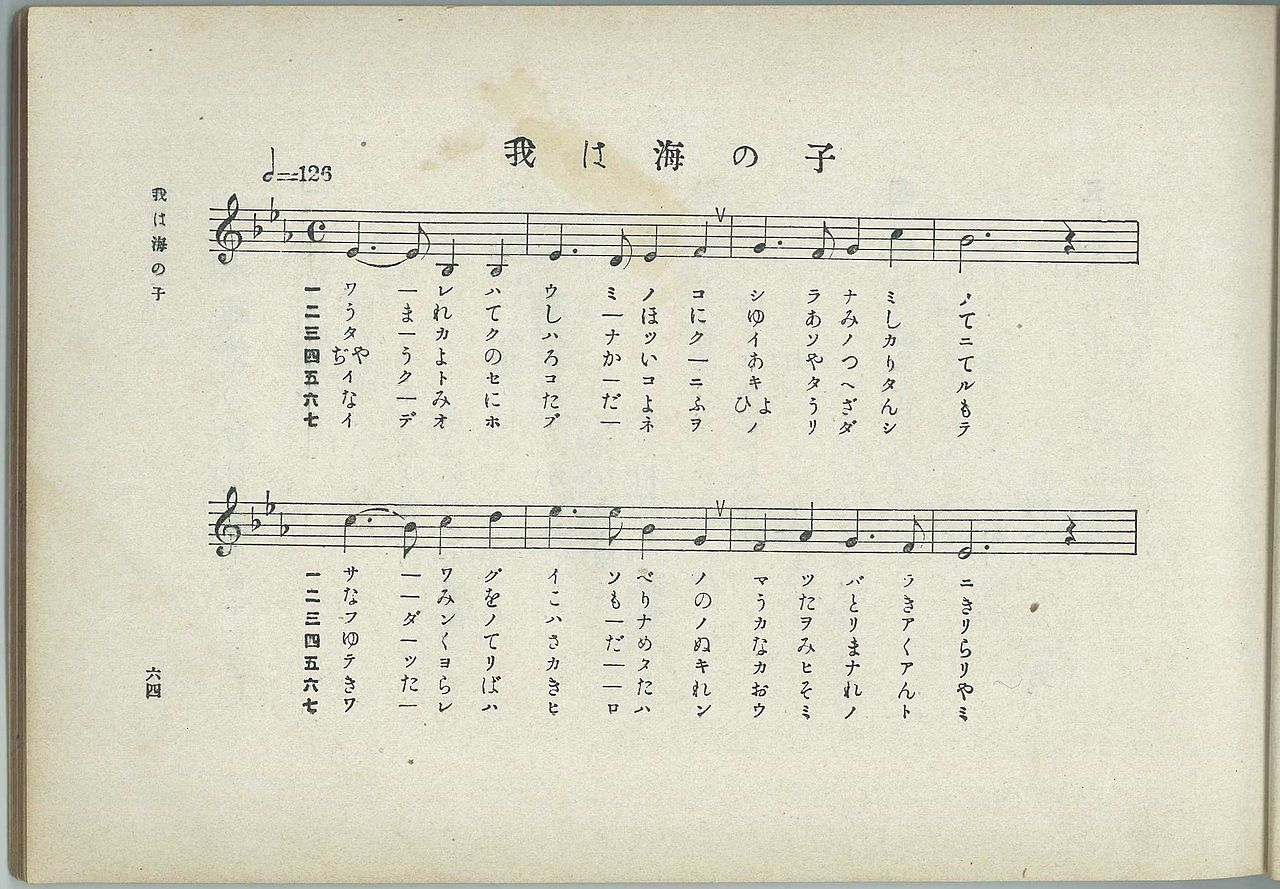 我は海の子
=126
我は海の子
一 ワーレハウミノコシラナミノ
二 うまれてしーほにゆあみして
三 ターカクハナツクイソノカニ
四 ぢやうよのろかいーあやつりて
五 イクトセコーコニキタヘタル
六 なーみにただよふひようざんも
七 イデオホブーネヲノリダシテ
一 サーワグイソベノマツバラニ
二 なーみをこもりのうたときき
三 フダンノハーナノカヲリアリ
四 ゆーくてさだめぬなみまくら
五 テッヨリカータキカヒナアリ
六 きたらばきーたれおそれんや
七 ワーレハヒロハンウミノトミ
六四